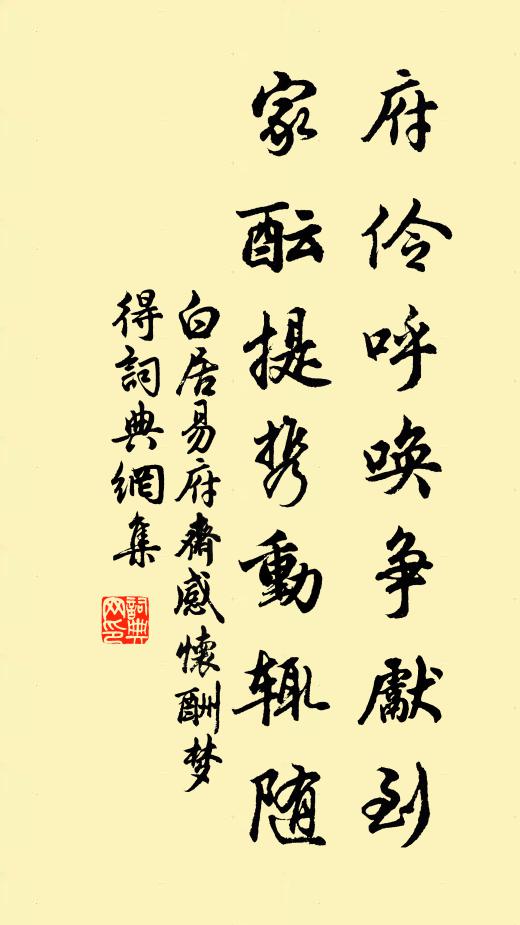 府伶呼唤争獻到
家酝提携動辄随
白居易府齋感懷酬梦
得詞典網集
詞典
网印